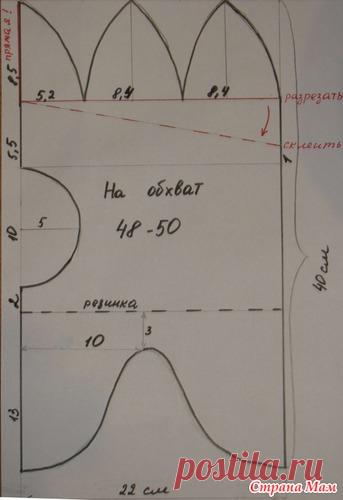 прямая!
8,5
5,2
8,4
8,4
разрезать
склеить
5,5
1
На обхват
48-50
5
10
40 см
2
резинка
3
10
13
22 см
Страна Мам
postila.ru